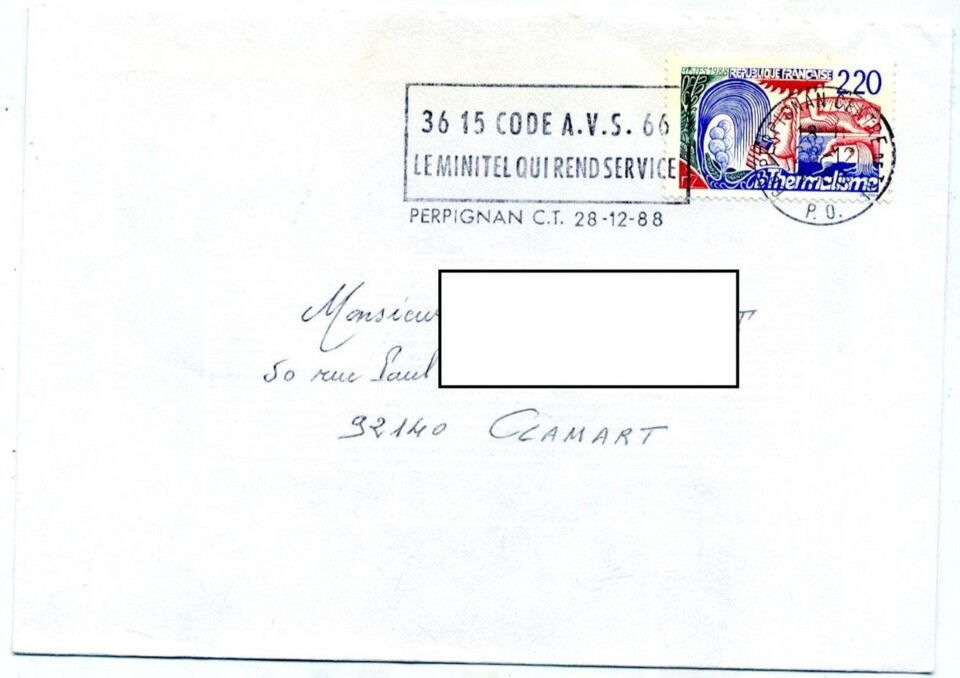 36 15 CODE A.V.S. 66
LE MINITEL QUI REND SERVICE
PERPIGNAN C.T. 28-12-88
POSTES 1988 REPUBLIQUE FRANÇAISE 2,20
thermalisme
PERPIGNAN CENTRE
12
P.O.
Monsieur
50 rue Paul
92140 CLAMART